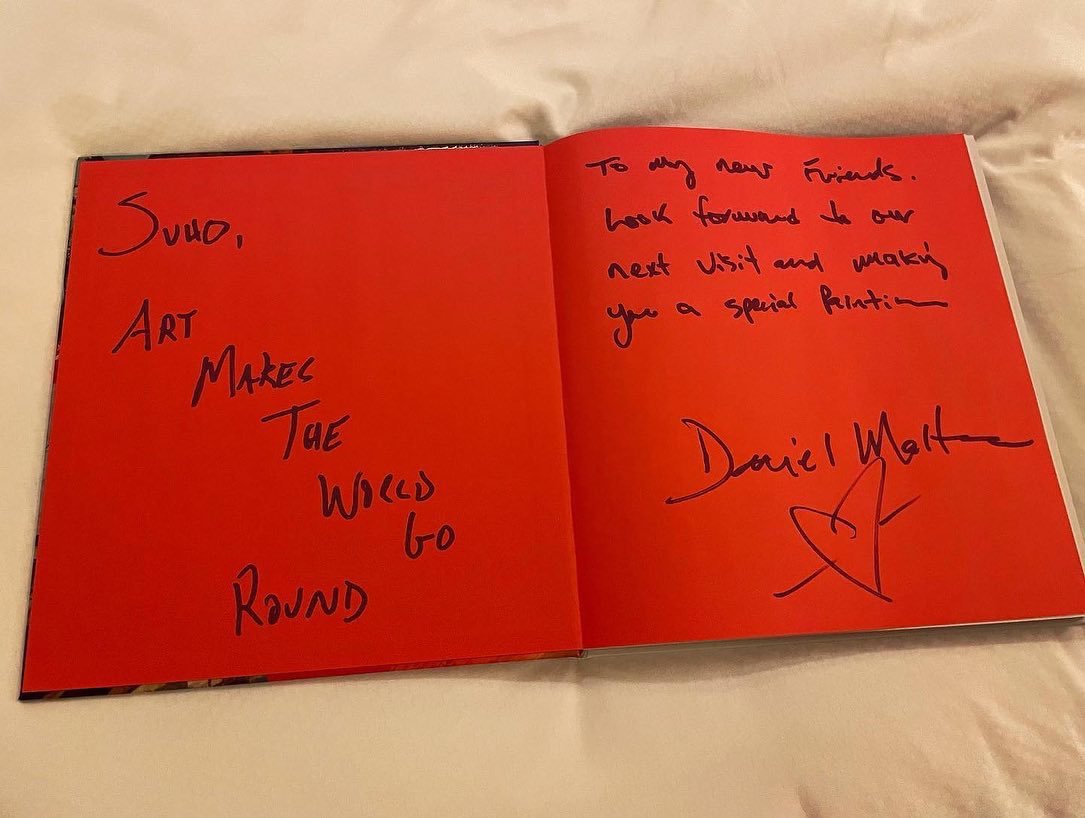 SUHO,
ART
MAKES
THE
WORLD
GO
ROUND
To my new Friends.
Look forward to our
next visit and making
you a special Painting
Daniel